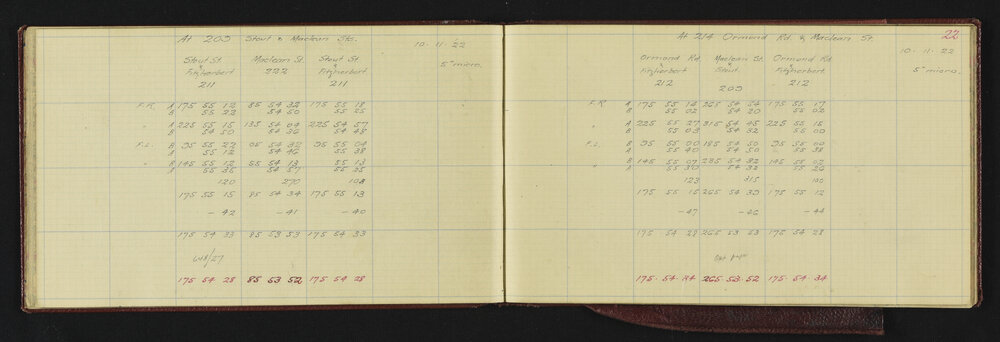 At 209 Stout & Maclean Sts.
10. 11. 22
Stout St. Maclean St. Stout St.
5" micro.
& Fitzherbert 222 & Fitzherbert
211 211
F.R. A 175 55 12 85 54 32 175 55 18
B 55 23 54 50 55 25
" A 225 55 15 135 54 04 225 54 57
B 54 50 54 36 54 48
F.L. B 95 55 27 95 55 04
A 55 12 54 46 55 38
" B 145 55 12 55 54 13 55 13
A 55 35 54 57 55 25
120 270 108
175 55 15 85 54 34 175 55 13
- 42 - 41 - 40
175 54 33 85 53 53 175 54 33
175 54 28 85 53 52 175 54 28
22
At 214 Ormond Rd. & Maclean St.
10. 11. 22
Ormond Rd. Maclean St. Ormond Rd.
5" micro.
& Fitzherbert & Stout. & Fitzherbert.
212 209 212
F.R. A 175 55 14 265 54 54 175 55 17
B 55 02 54 20 55 02
" A 225 55 27 315 54 45 225 55 15
B 55 03 54 32 55 00
F.L. B 95 55 00 185 54 50 95 55 00
A 55 40 54 50 55 38
" B 145 55 07 235 54 32 145 55 02
A 55 30 54 32 55 26
123 315 100
175 55 15 265 54 39 175 55 12
- 47 - 46 - 44
175 54 28 265 53 53 175 54 28
175. 54. 34 265 53. 52 175. 54. 34